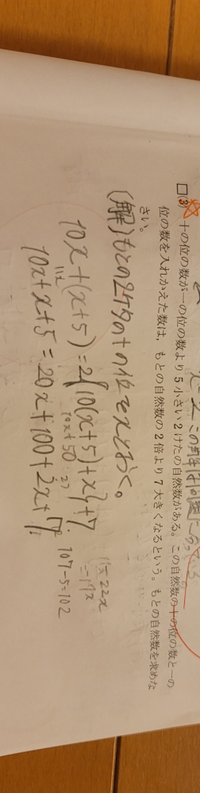 □(3) 十の位の数が一の位の数より5小さい2けたの自然数がある。この自然数の十の位の数と一の
位の数を入れかえた数は、もとの自然数の2倍より7大きくなるという。もとの自然数を求めな
さい。
(解)もとの2ケタの十の位をxとおく。
10x+(x+5)=2{10(x+5)+x}+7
10x+50
10x+x+5=20x+100+2x+7
11x=22x
=11x
107-5=102